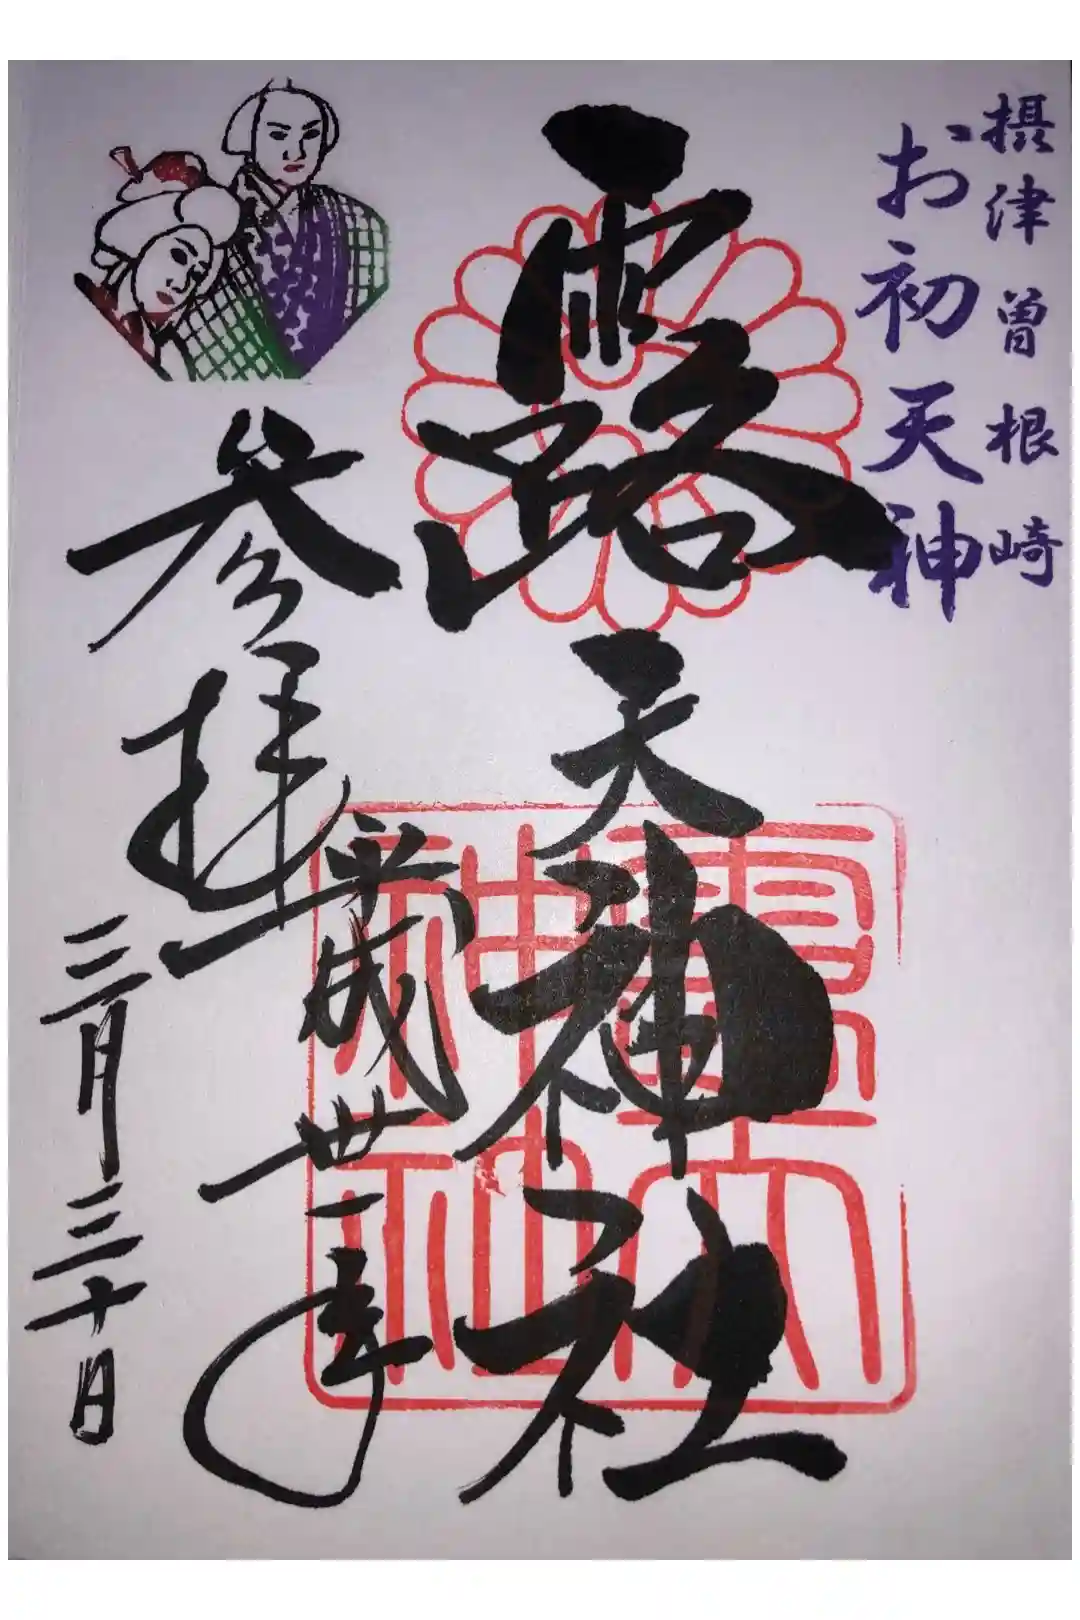 摂津曽根崎
お初天神
露天神社
参拝
平成卅一年
三月三十日
露天
神社